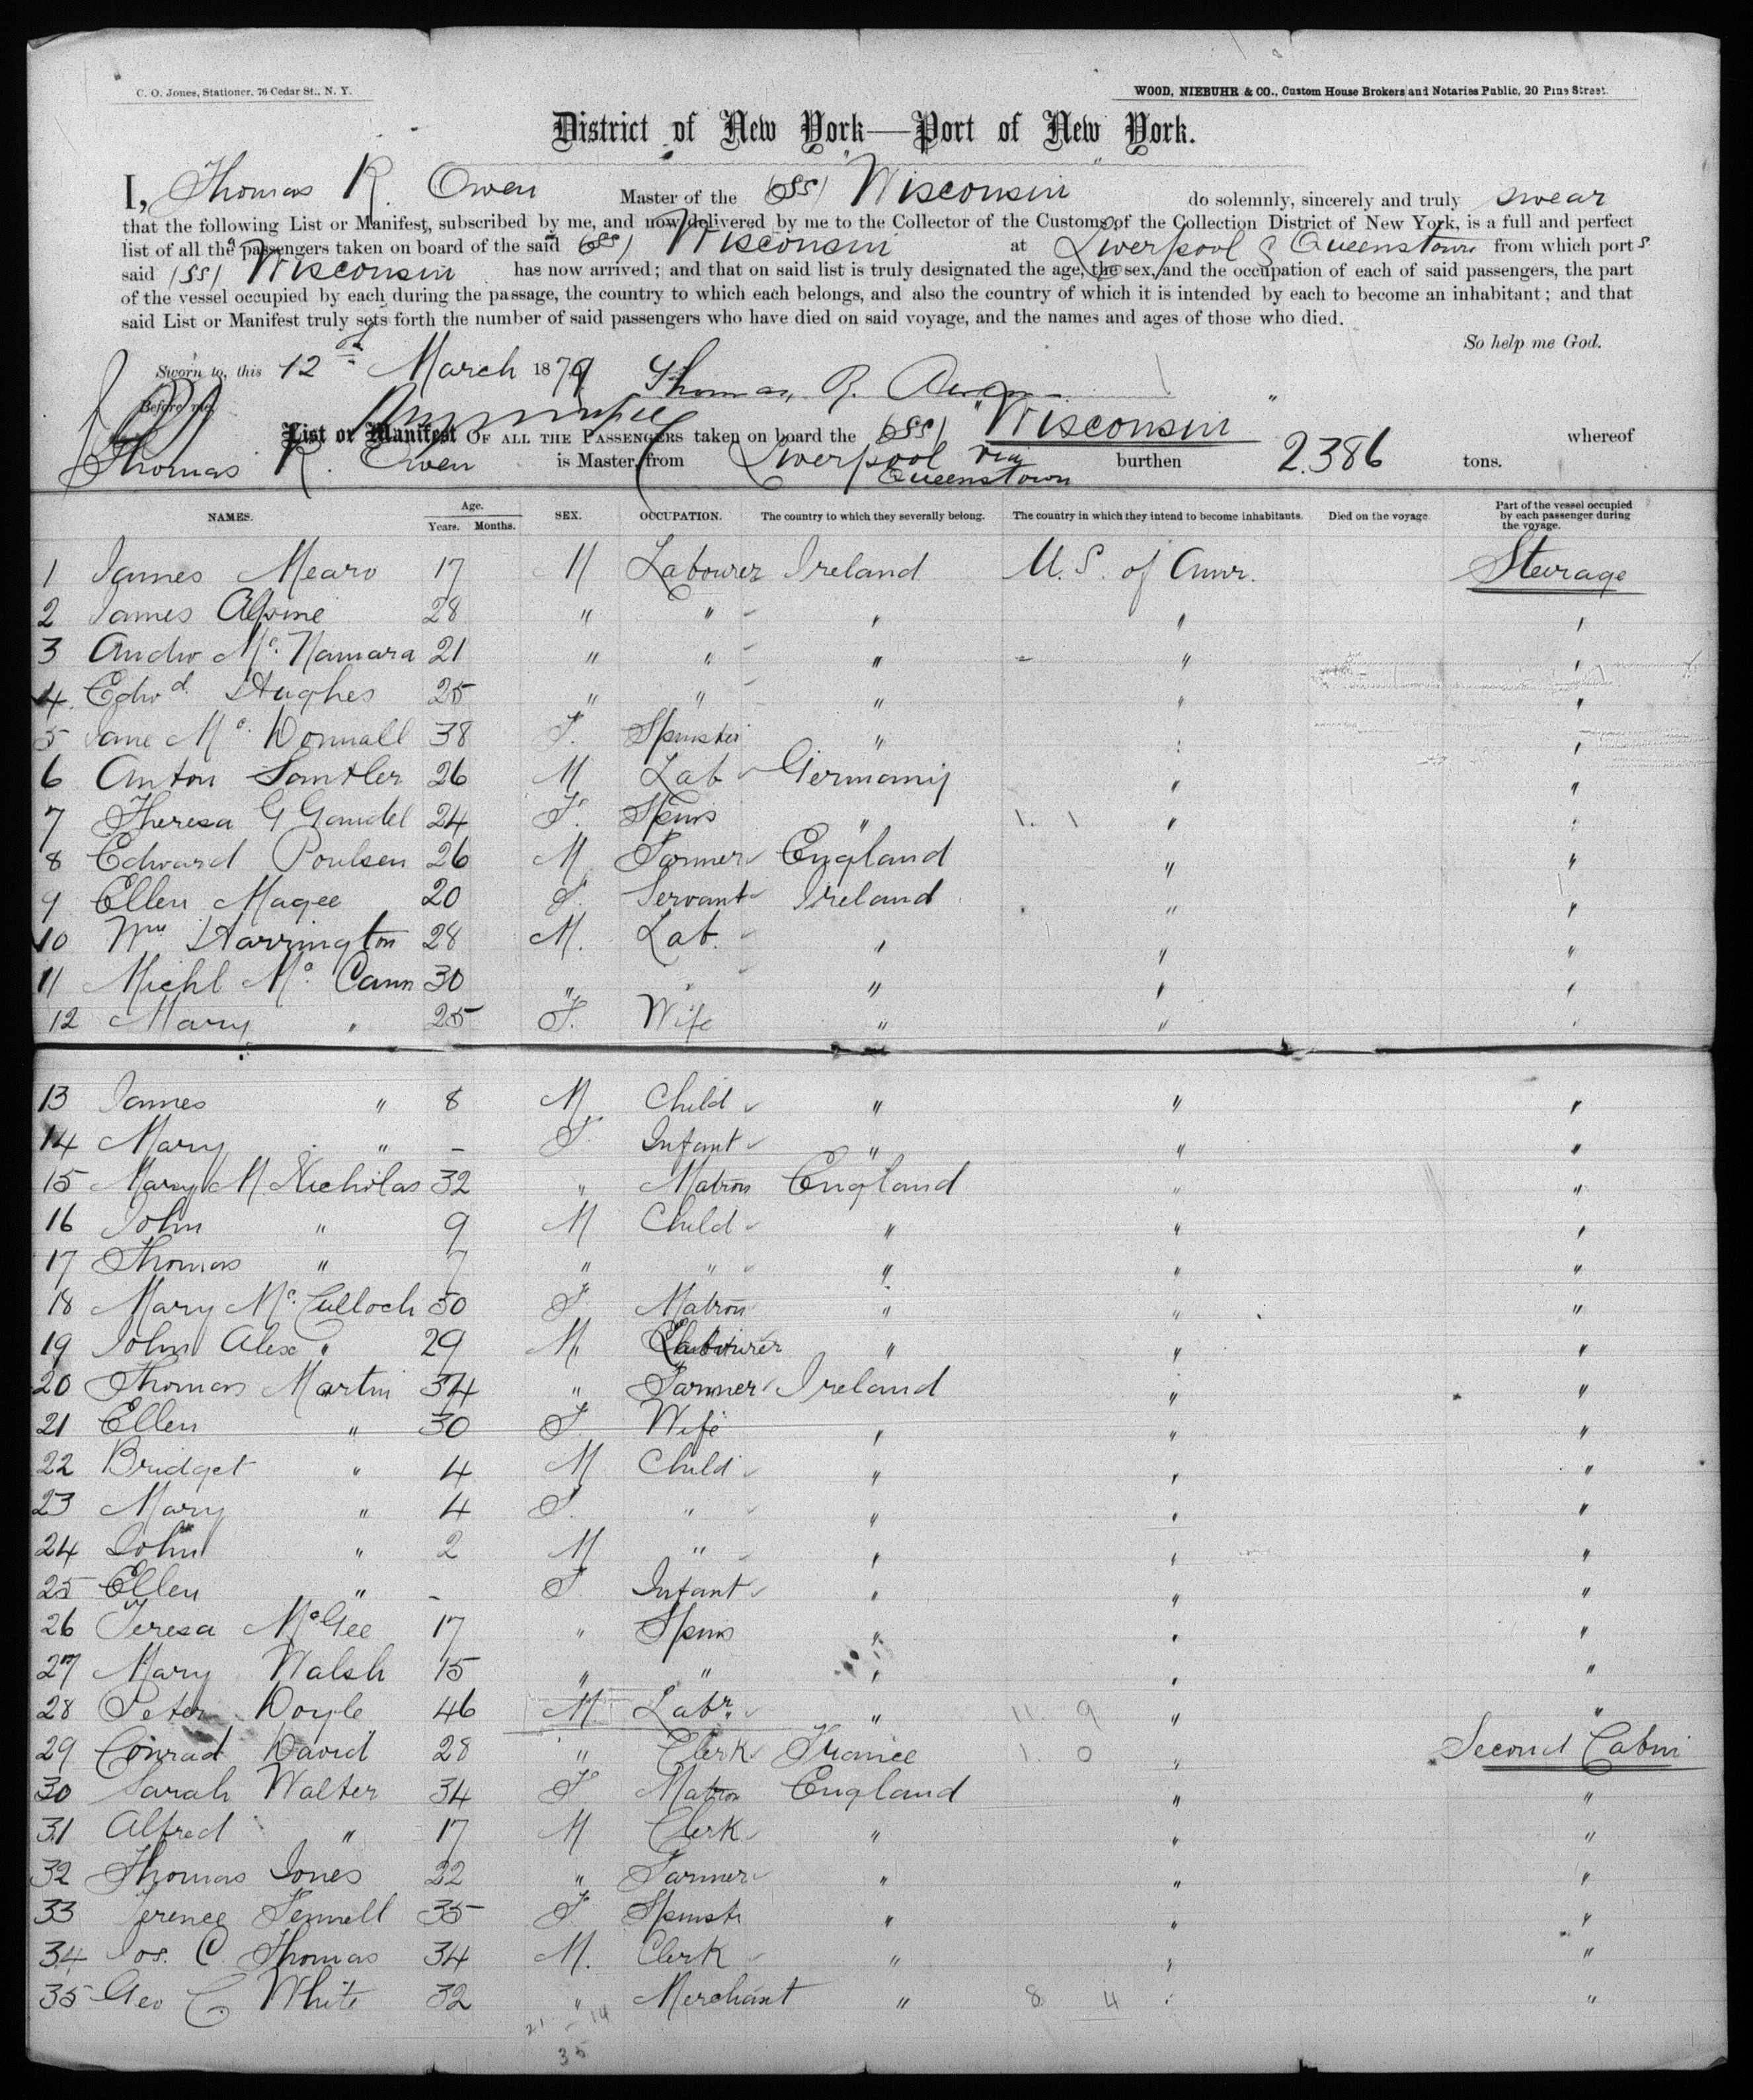 C. O. Jones, Stationer, 76 Cedar St., N. Y.
WOOD, NIEBUHR & CO., Custom House Brokers and Notaries Public, 20 Pine Street.
District of New York—Port of New York.
I, Thomas R. Owen Master of the (SS) "Wisconsin" do solemnly, sincerely and truly swear
that the following List or Manifest, subscribed by me, and now delivered by me to the Collector of the Customs of the Collection District of New York, is a full and perfect
list of all the passengers taken on board of the said (SS) Wisconsin at Liverpool & Queenstown from which ports
said (SS) Wisconsin has now arrived; and that on said list is truly designated the age, the sex, and the occupation of each of said passengers, the part
of the vessel occupied by each during the passage, the country to which each belongs, and also the country of which it is intended by each to become an inhabitant; and that
said List or Manifest truly sets forth the number of said passengers who have died on said voyage, and the names and ages of those who died.
So help me God.
Sworn to, this 12th of March 1879 Thomas R. Owen
Before me,
List or Manifest OF ALL THE PASSENGERS taken on board the (SS) "Wisconsin" whereof
Thomas R. Owen is Master, from Liverpool via Queenstown burthen 2.386 tons.
NAMES. Age. Years. Months. SEX. OCCUPATION. The country to which they severally belong. The country in which they intend to become inhabitants. Died on the voyage. Part of the vessel occupied by each passenger during the voyage.
1 James 17 M Labourer Ireland U.S. of Amr. Steerage
2 James 28 " " " " "
3 Andw McNamara 21 " " " " "
4 Edwd Hughes 25 " " " " "
5 Jane McDonnall 38 F. Spinster " " "
6 Anton 26 M Lab Germany " "
7 Theresa G 24 F. Spins " 1. 1 " "
8 Edward Poulsen 26 M Farmer England " "
9 Ellen Magee 20 F. Servant Ireland " "
10 Wm Harrington 28 M. Lab. " " "
11 Michl McCann 30 " " " " "
12 Mary " 25 F. Wife " " "
13 James " 8 M Child " " "
14 Mary " - F. Infant " " "
15 Mary M Nicholas 32 " Matron England " "
16 John " 9 M Child " " "
17 Thomas " 7 " " " " "
18 Mary McCulloch 50 F. Matron " " "
19 John Alex " 29 M. Labourer " " "
20 Thomas Martin 34 " Farmer Ireland " "
21 Ellen " 30 F Wife " " "
22 Bridget " 4 M Child " " "
23 Mary " 4 F. " " " "
24 John " 2 M " " " "
25 Ellen " - F Infant " " "
26 Teresa McGee 17 " Spins " " "
27 Mary Walsh 15 " " " " "
28 Peter Doyle 46 M Labr. " 11. 9 " "
29 Conrad David 28 " Clerk France 1. 0 " Second Cabin
30 Sarah Walter 34 F Matron England " "
31 Alfred " 17 M Clerk " " "
32 Thomas Jones 22 " Farmer " " "
33 Fennell 35 F. Spinstr " " "
34 Jos. C Thomas 34 M. Clerk " " "
35 Geo C. White 32 " Merchant " 8 4 " "
21 - 14
35